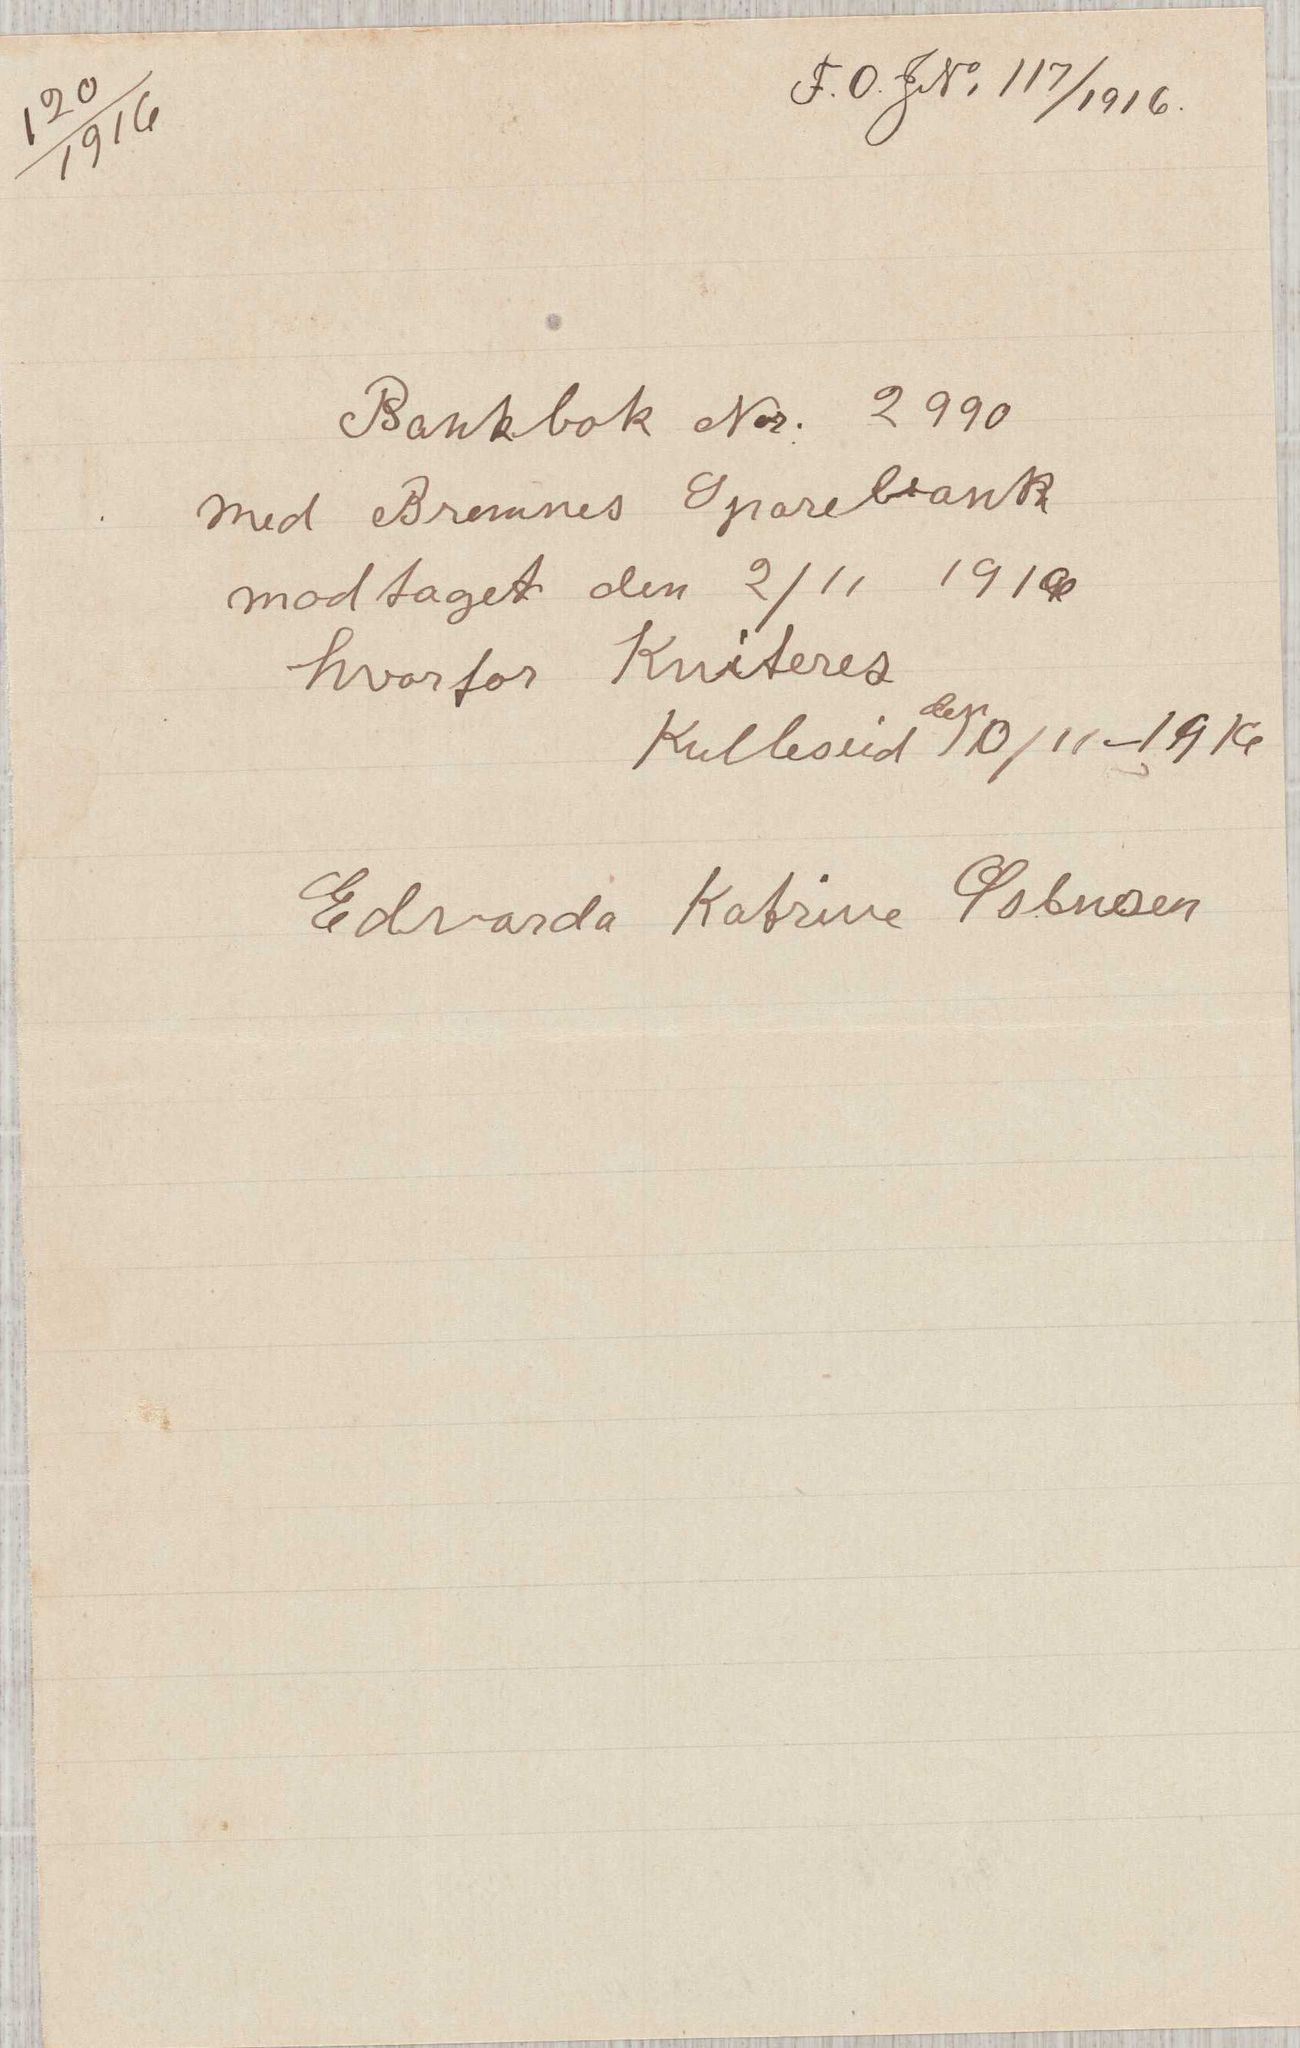 120/1916
F.O. JNo. 117/1916.
Bankbok Nr. 2990
med Bremnes Sparebank
modtaget den 2/11 1916
hvorfor Kviteres
Kulleseid den 10/11-1916
Edvarda Katrine Østnesen